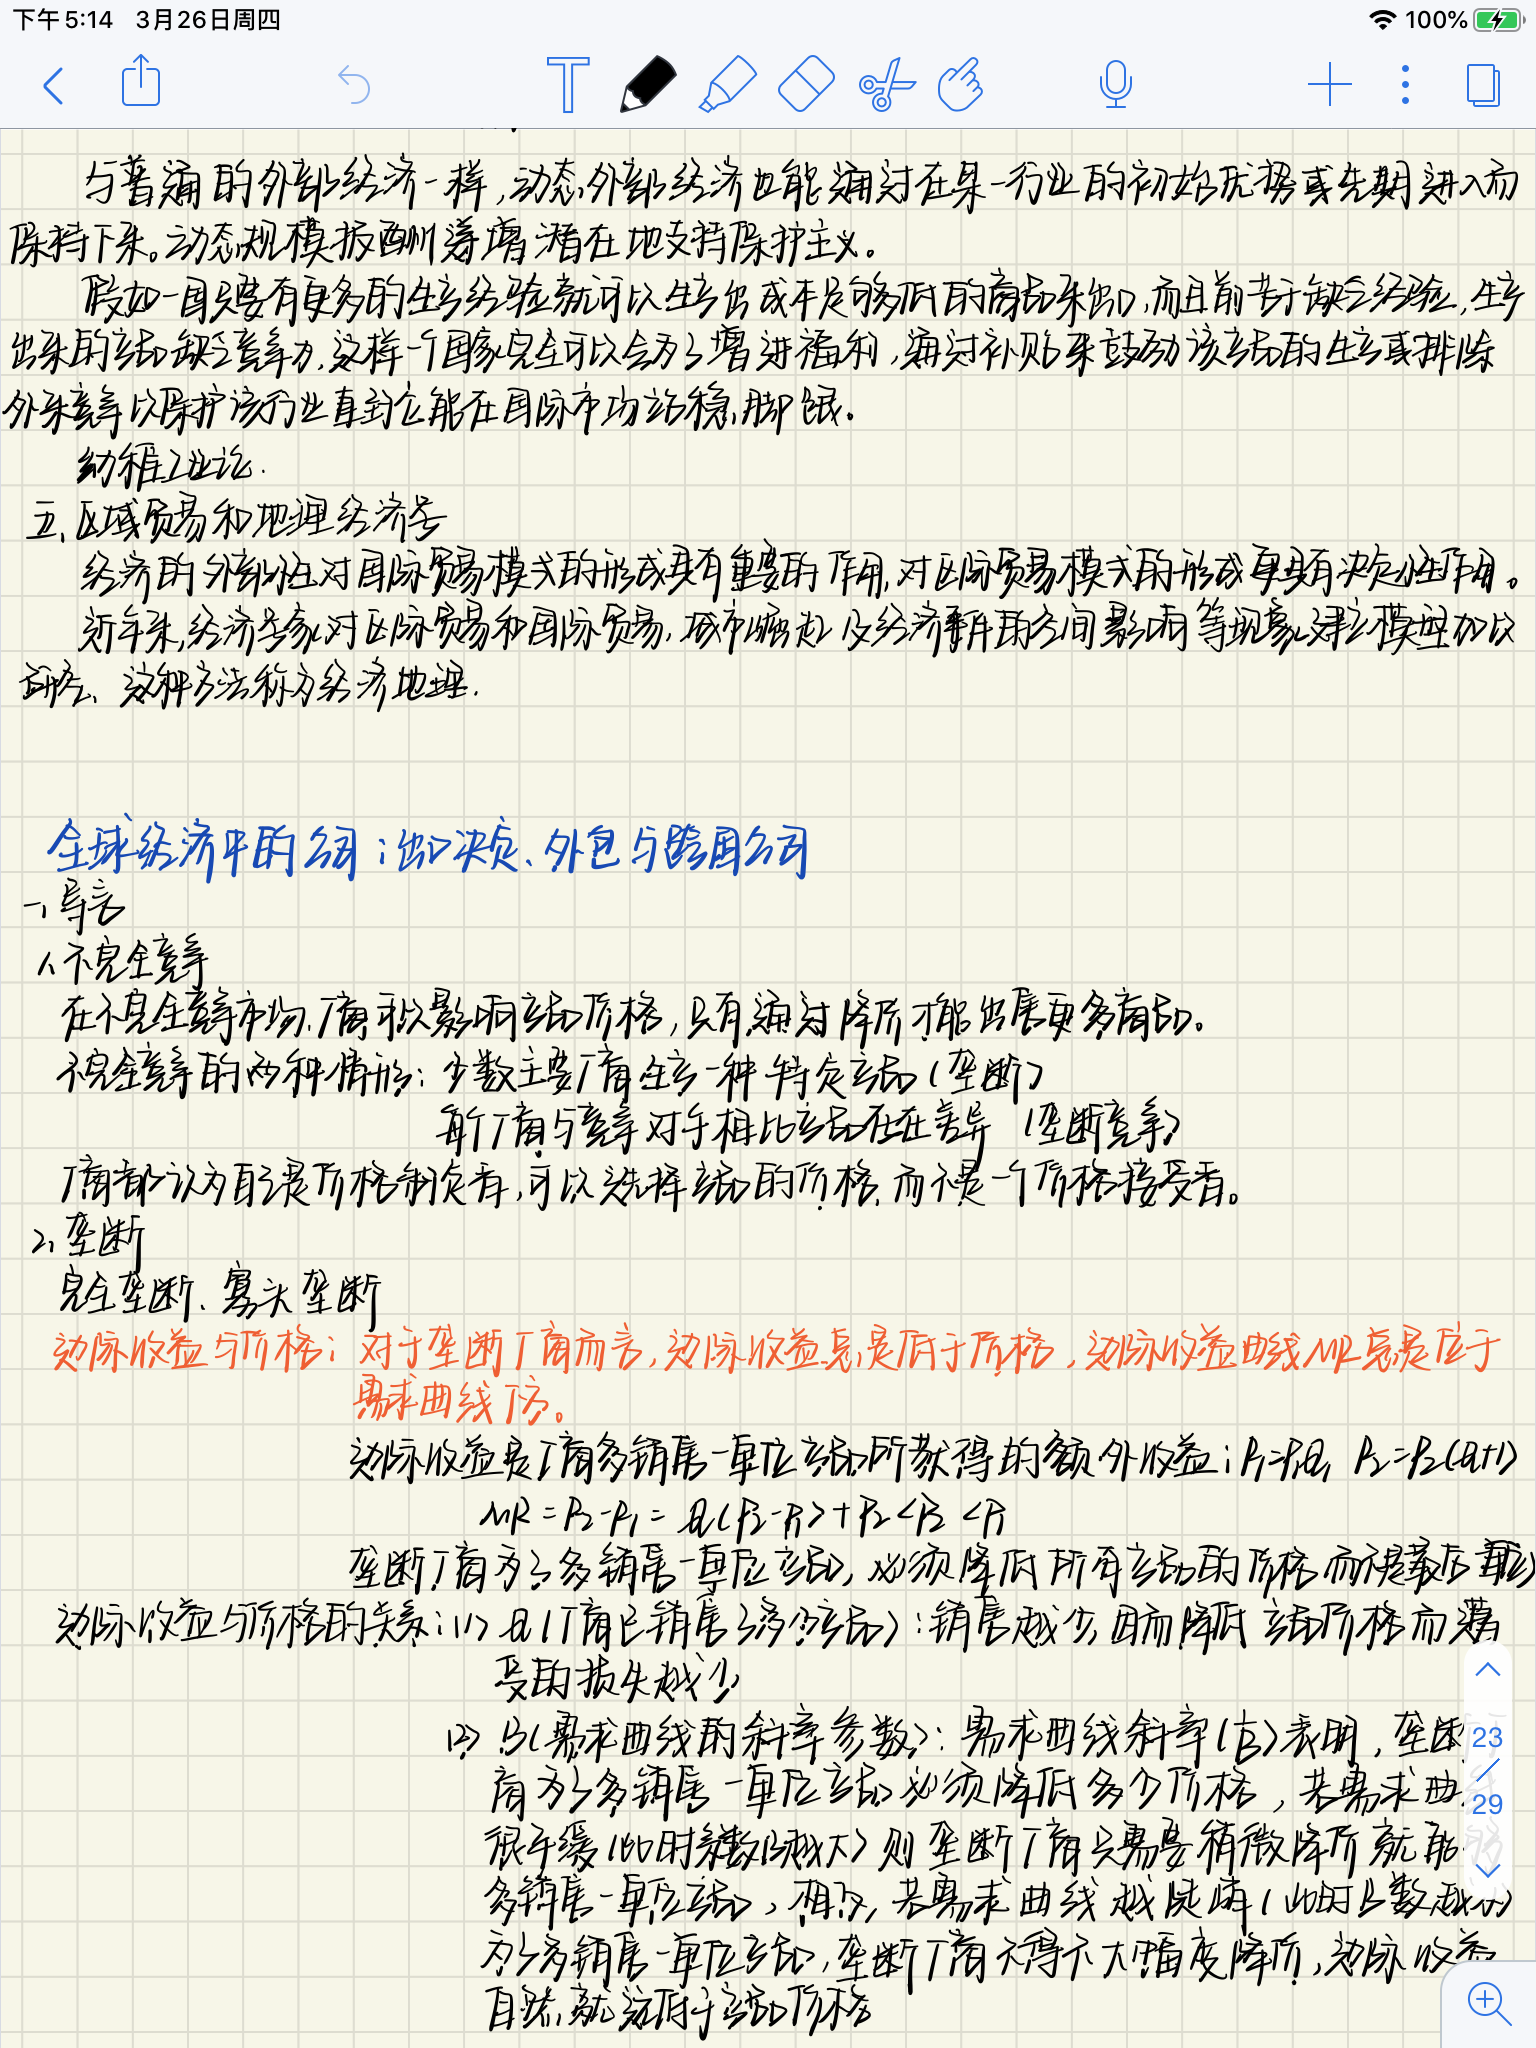 下午5:14 3月26日周四
100%
与普通的外部经济一样,动态外部经济也能通过在某一行业的初始优势或先期进入而
保持下来。动态规模报酬递增潜在地支持保护主义。
假如一国只要有更多的生产经验就可以生产出成本足够低的商品来出口,而目前苦于缺乏经验,生产
出来的产品缺乏竞争力,这样一个国家完全可以会为了增进福利,通过补贴来鼓励该产品的生产或排除
外来竞争以保护该行业直到它能在国际市场站稳脚跟。
幼稚工业论.
五、区域贸易和地理经济学
经济的外部性对国际贸易模式的形成具有重要的作用,对区际贸易模式的形成更具有决定性作用。
近年来,经济学家从对区际贸易和国际贸易,城市崛起及经济事件的空间影响等现象建立模型加以
研究、这种方法称为经济地理.
全球经济中的公司:出口决定、外包与跨国公司
一、导言
1、不完全竞争
在不完全竞争市场,厂商可以影响产品价格,只有通过降价才能出售更多商品.
不完全竞争的两种情形:少数主要厂商生产一种特定产品(垄断)
每个厂商与竞争对手相比产品存在差异 (垄断竞争)
厂商都认为自己是价格制定者,可以选择产品的价格,而不是一个价格接受者。
2、垄断
完全垄断、寡头垄断
边际收益与价格:对于垄断厂商而言,边际收益总是低于价格,边际收益曲线MR总是位于
需求曲线下方。
边际收益是厂商多销售一单位产品所获得的额外收益:P₁=P₁Q, P₂=P₂(Q+1)
MR=P₂-P₁=Q(P₂-P₁)+P₂<P₂<P₁
垄断厂商为了多销售一单位产品,必须降低所有产品的价格而不是最后一单位
边际收益与价格的关系:(1) Q(厂商已销售了多少产品):销售越少,因而降低产品价格而遭
受的损失越少
(2) B(需求曲线的斜率参数):需求曲线斜率(1/B)表明,垄断
商为了多销售一单位产品必须降低多少价格,若需求曲线
很平缓(此时参数B越大)则垄断厂商只需要稍微降价就能够
多销售一单位产品,相反,若需求曲线越陡峭(此时B数越小)
为了多销售一单位产品,垄断厂商不得不大幅度降价,边际收益
自然就远低于产品价格
23
29